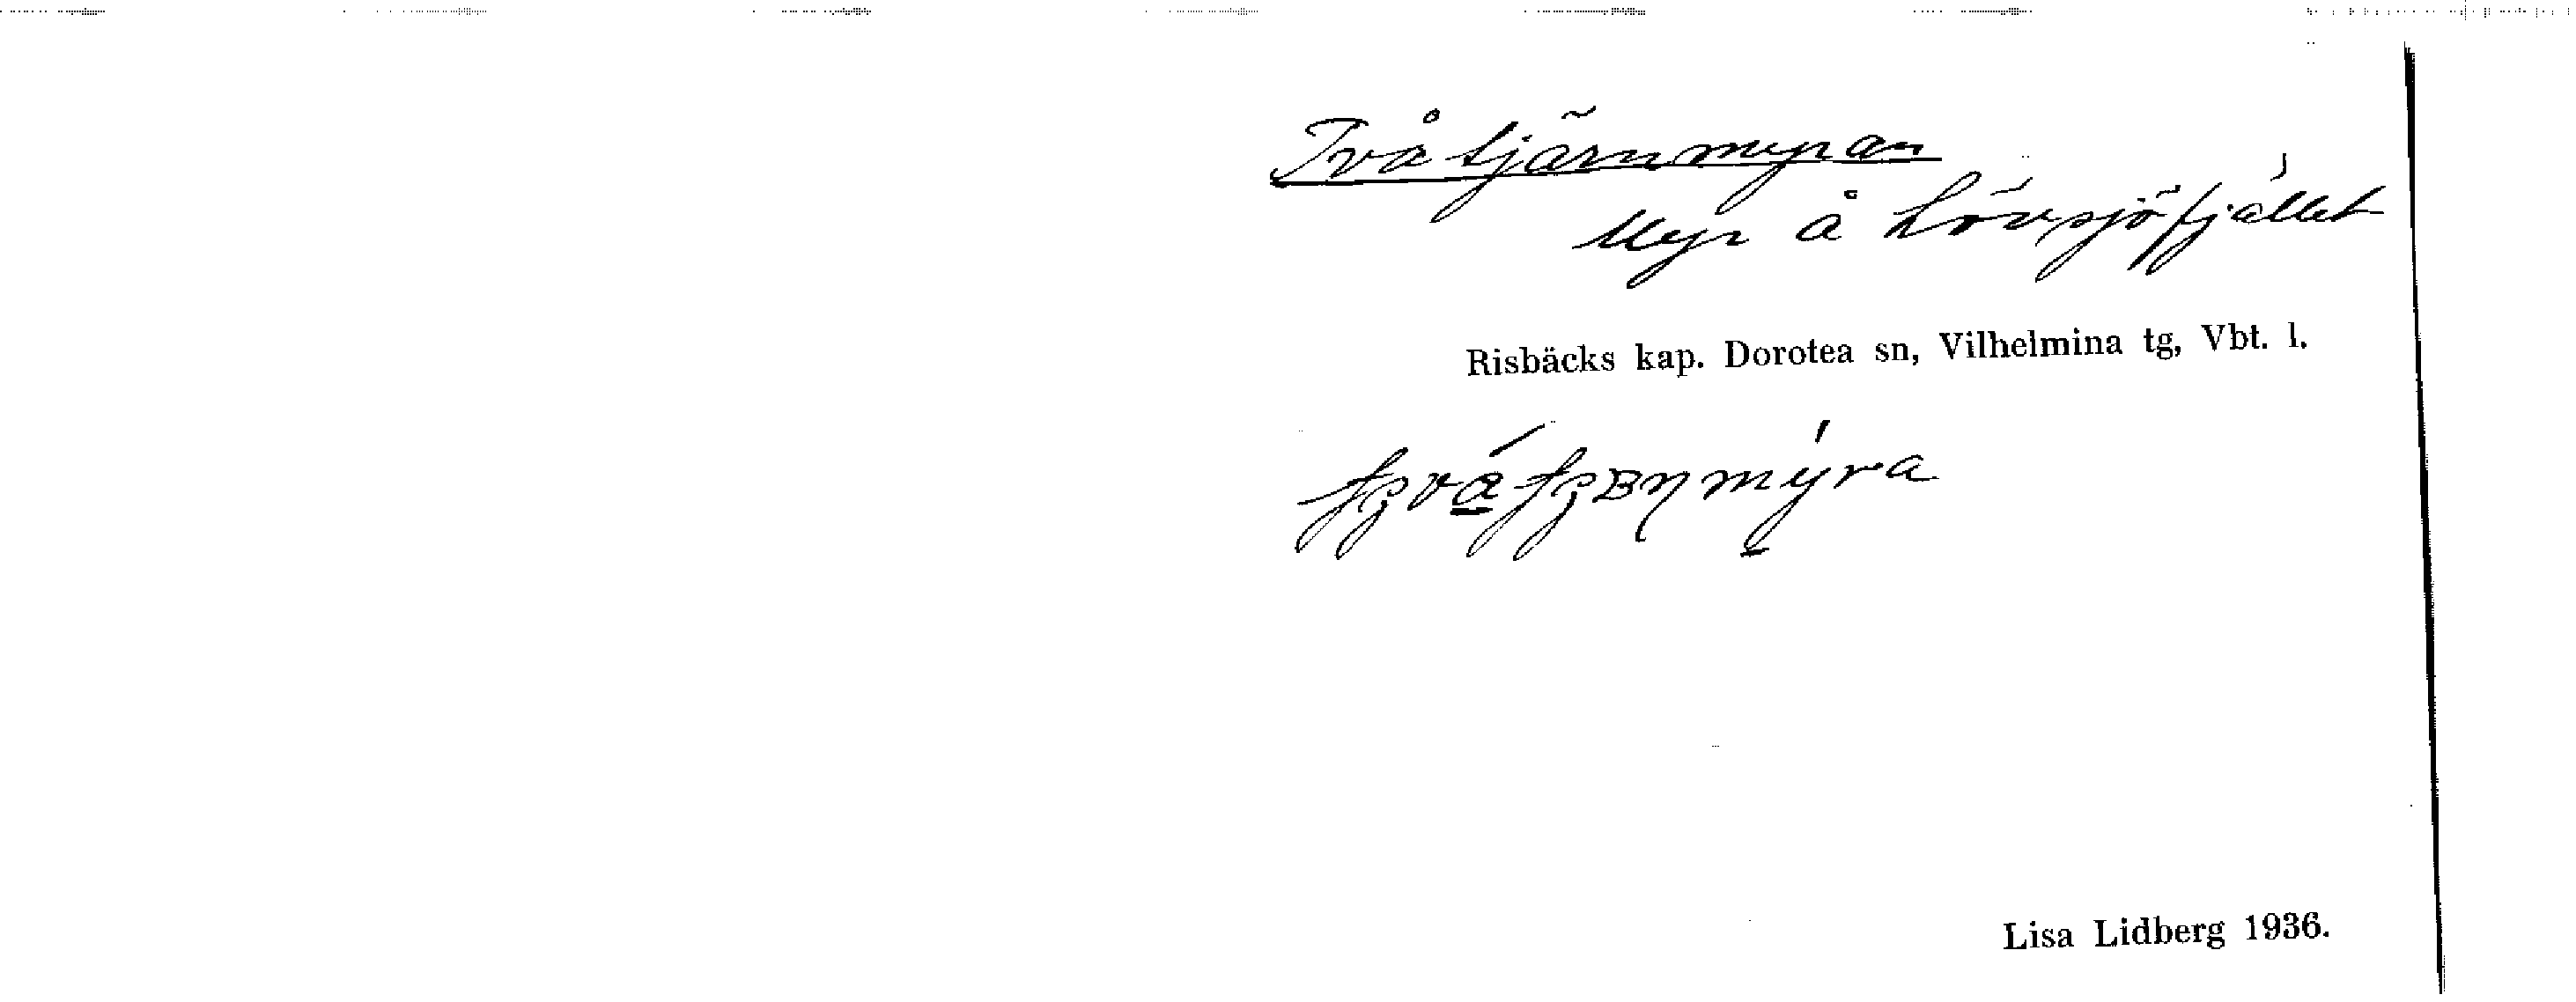 Tvåtjärnmyran
Myr å Lövsjöfjället
Risbäcks kap. Dorotea sn, Vilhelmina tg, Vbt. l.
Lisa Lidberg 1936.